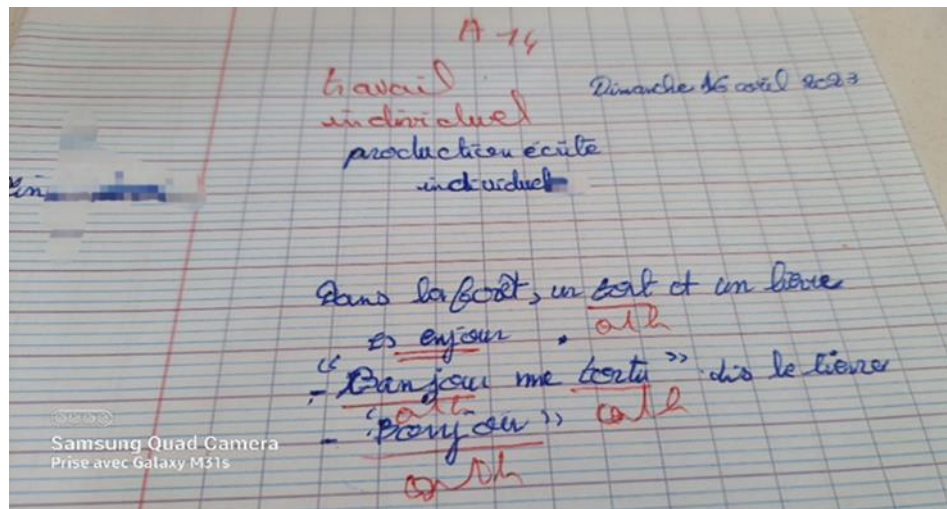 A-14
travail
individuel
Dimanche 16 avril 2023
production écrite
individuel
Dans la forêt, un tort et un lievre
es enjour .
orth
- "Banjour me tortu" dis le lievre
orth
orth
- "Bonjour"
orth
Samsung Quad Camera
Prise avec Galaxy M31s